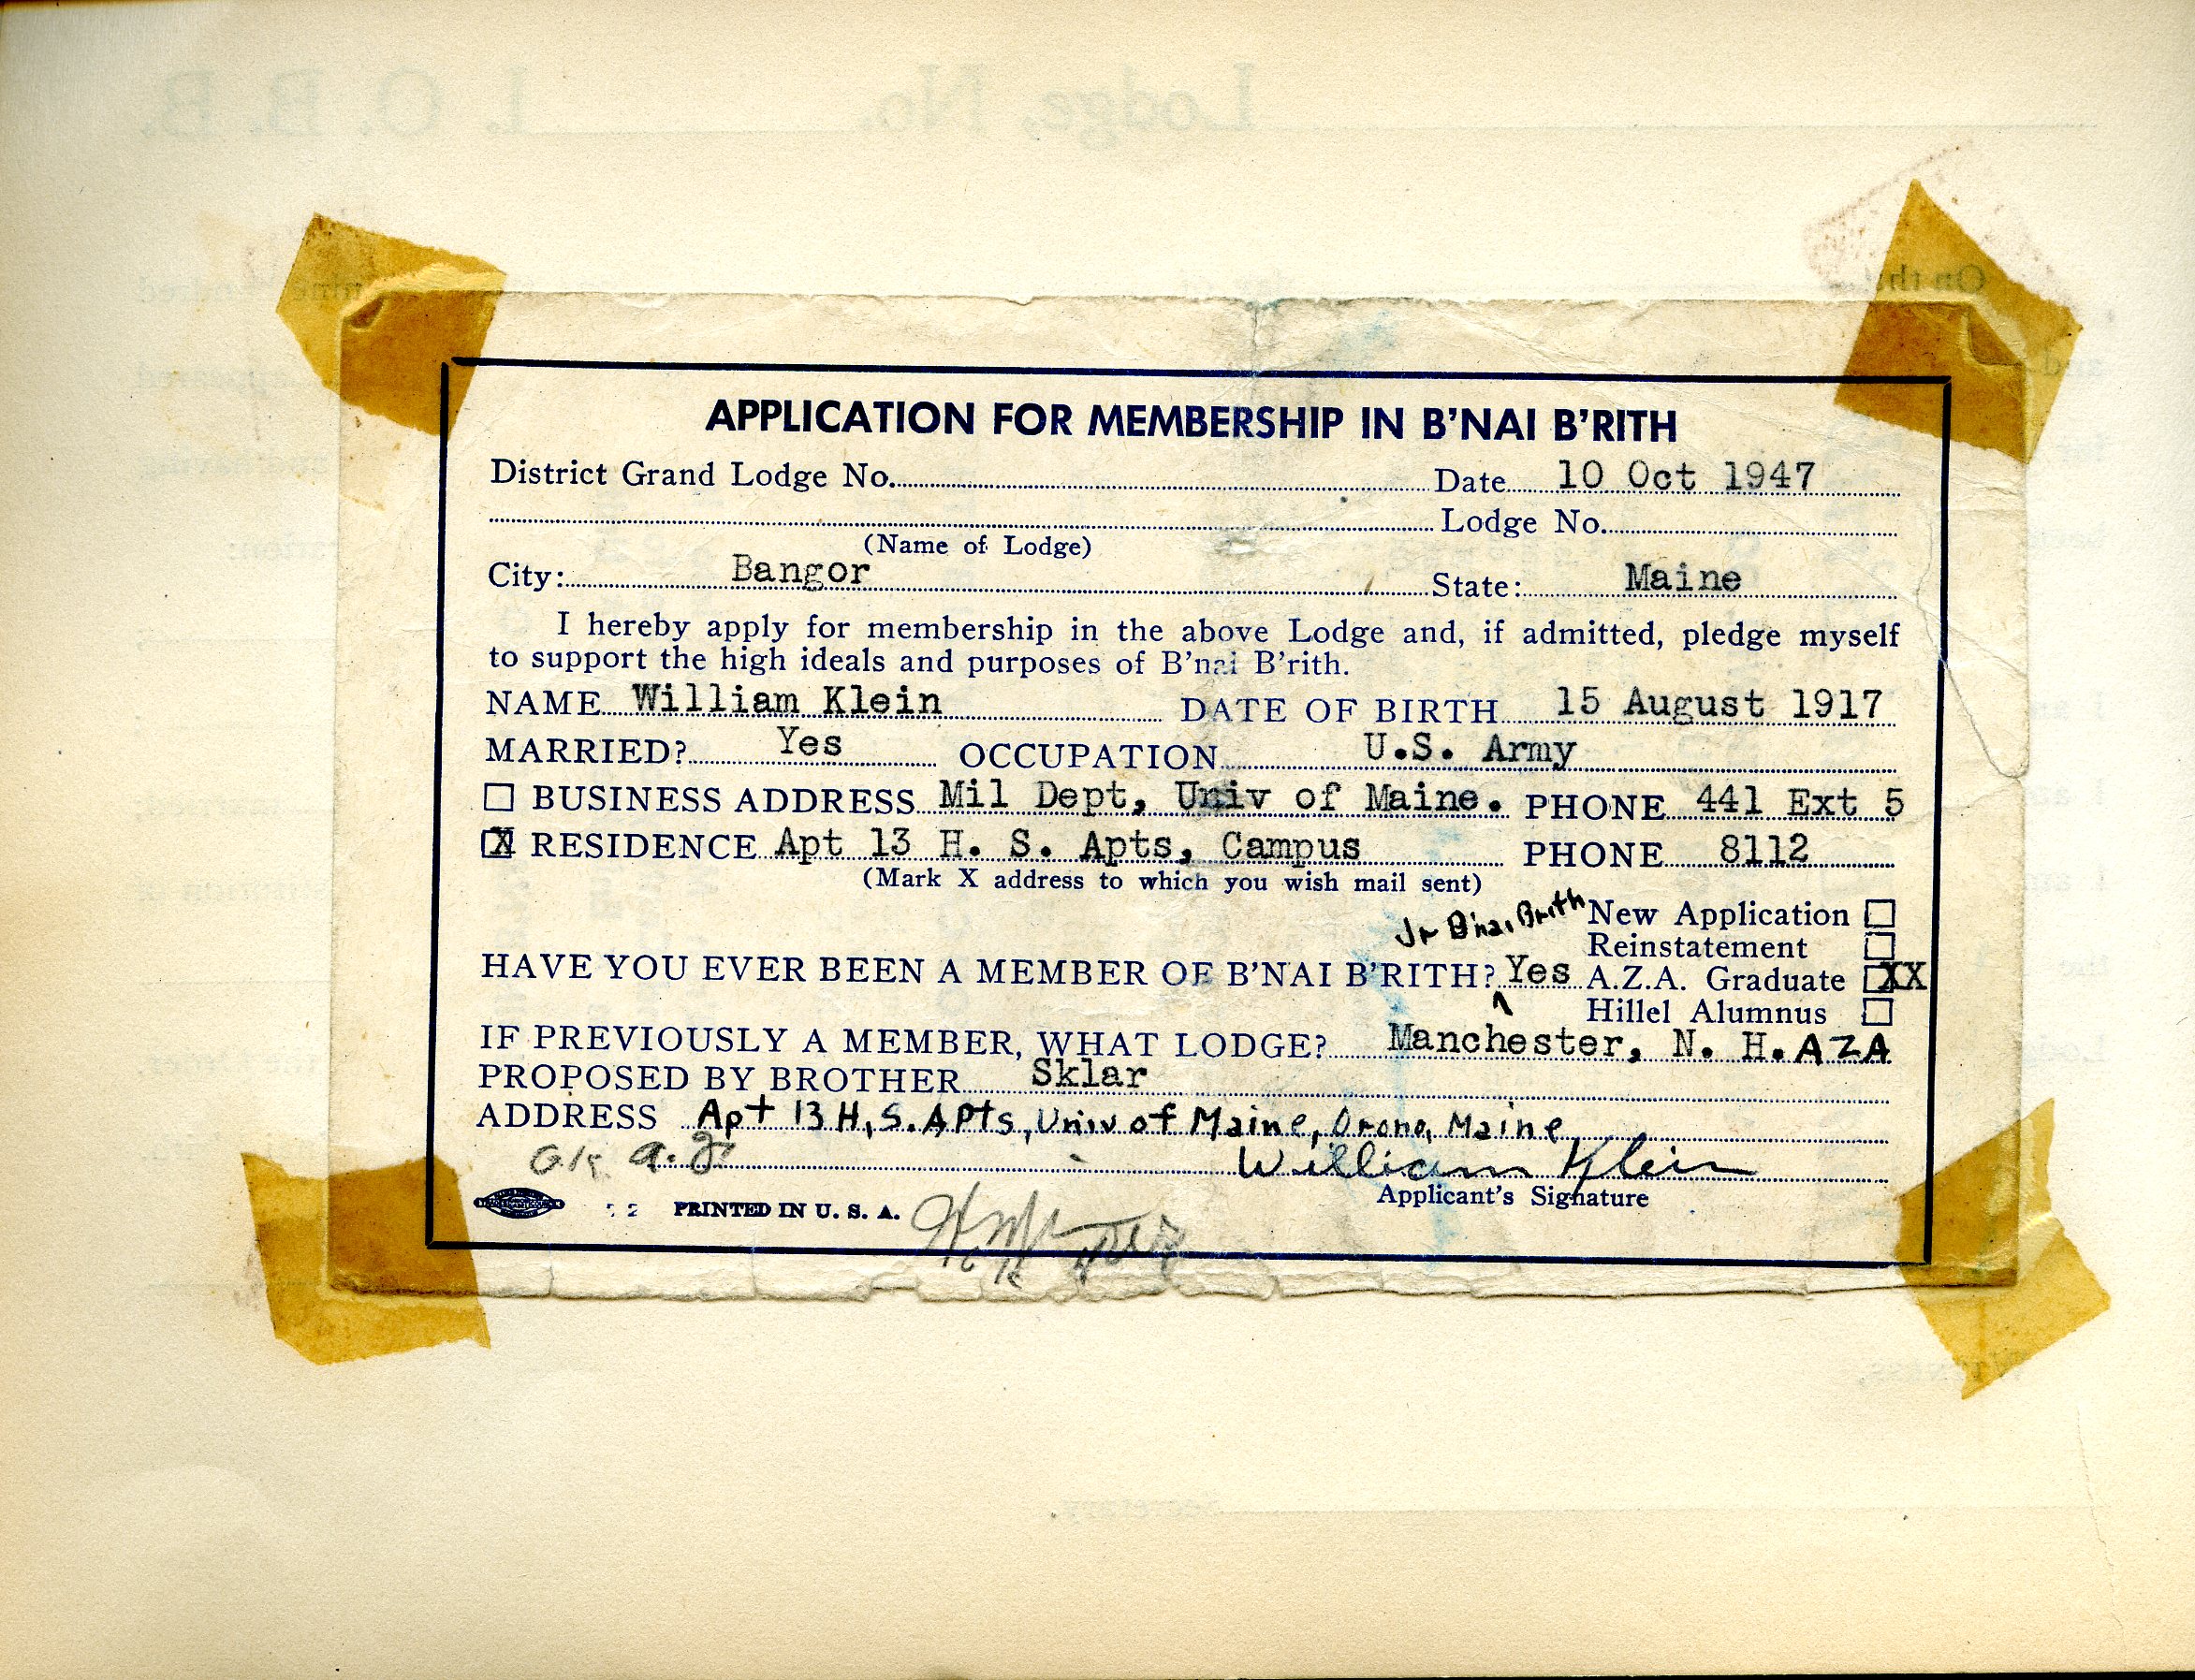 Lodge, No. I. O. B. B.
APPLICATION FOR MEMBERSHIP IN B'NAI B'RITH
District Grand Lodge No. Date 10 Oct 1947
Lodge No.
(Name of Lodge)
City: Bangor State: Maine
I hereby apply for membership in the above Lodge and, if admitted, pledge myself
to support the high ideals and purposes of B'nai B'rith.
NAME William Klein DATE OF BIRTH 15 August 1917
MARRIED? Yes OCCUPATION U.S. Army
BUSINESS ADDRESS Mil Dept, Univ of Maine. PHONE 441 Ext 5
X RESIDENCE Apt 13 H. S. Apts, Campus PHONE 8112
(Mark X address to which you wish mail sent)
Jr B'nai Brith New Application
Reinstatement
HAVE YOU EVER BEEN A MEMBER OF B'NAI B'RITH? Yes A.Z.A. Graduate XX
Hillel Alumnus
IF PREVIOUSLY A MEMBER, WHAT LODGE? Manchester, N. H. AZA
PROPOSED BY BROTHER Sklar
ADDRESS Apt 13 H, S. Apts, Univ of Maine, Orono, Maine
OK William Klein
Applicant's Signature
PRINTED IN U. S. A.
Secretary.